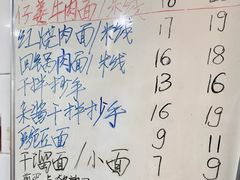 仔姜牛肉面/米线 18 20
红烧肉面/米线 17 19
回锅肉面/米线 16 18
干拌抄手 13 16
杂酱干拌抄手 16 19
豌豆面 9 11
干溜面/小面 7 9